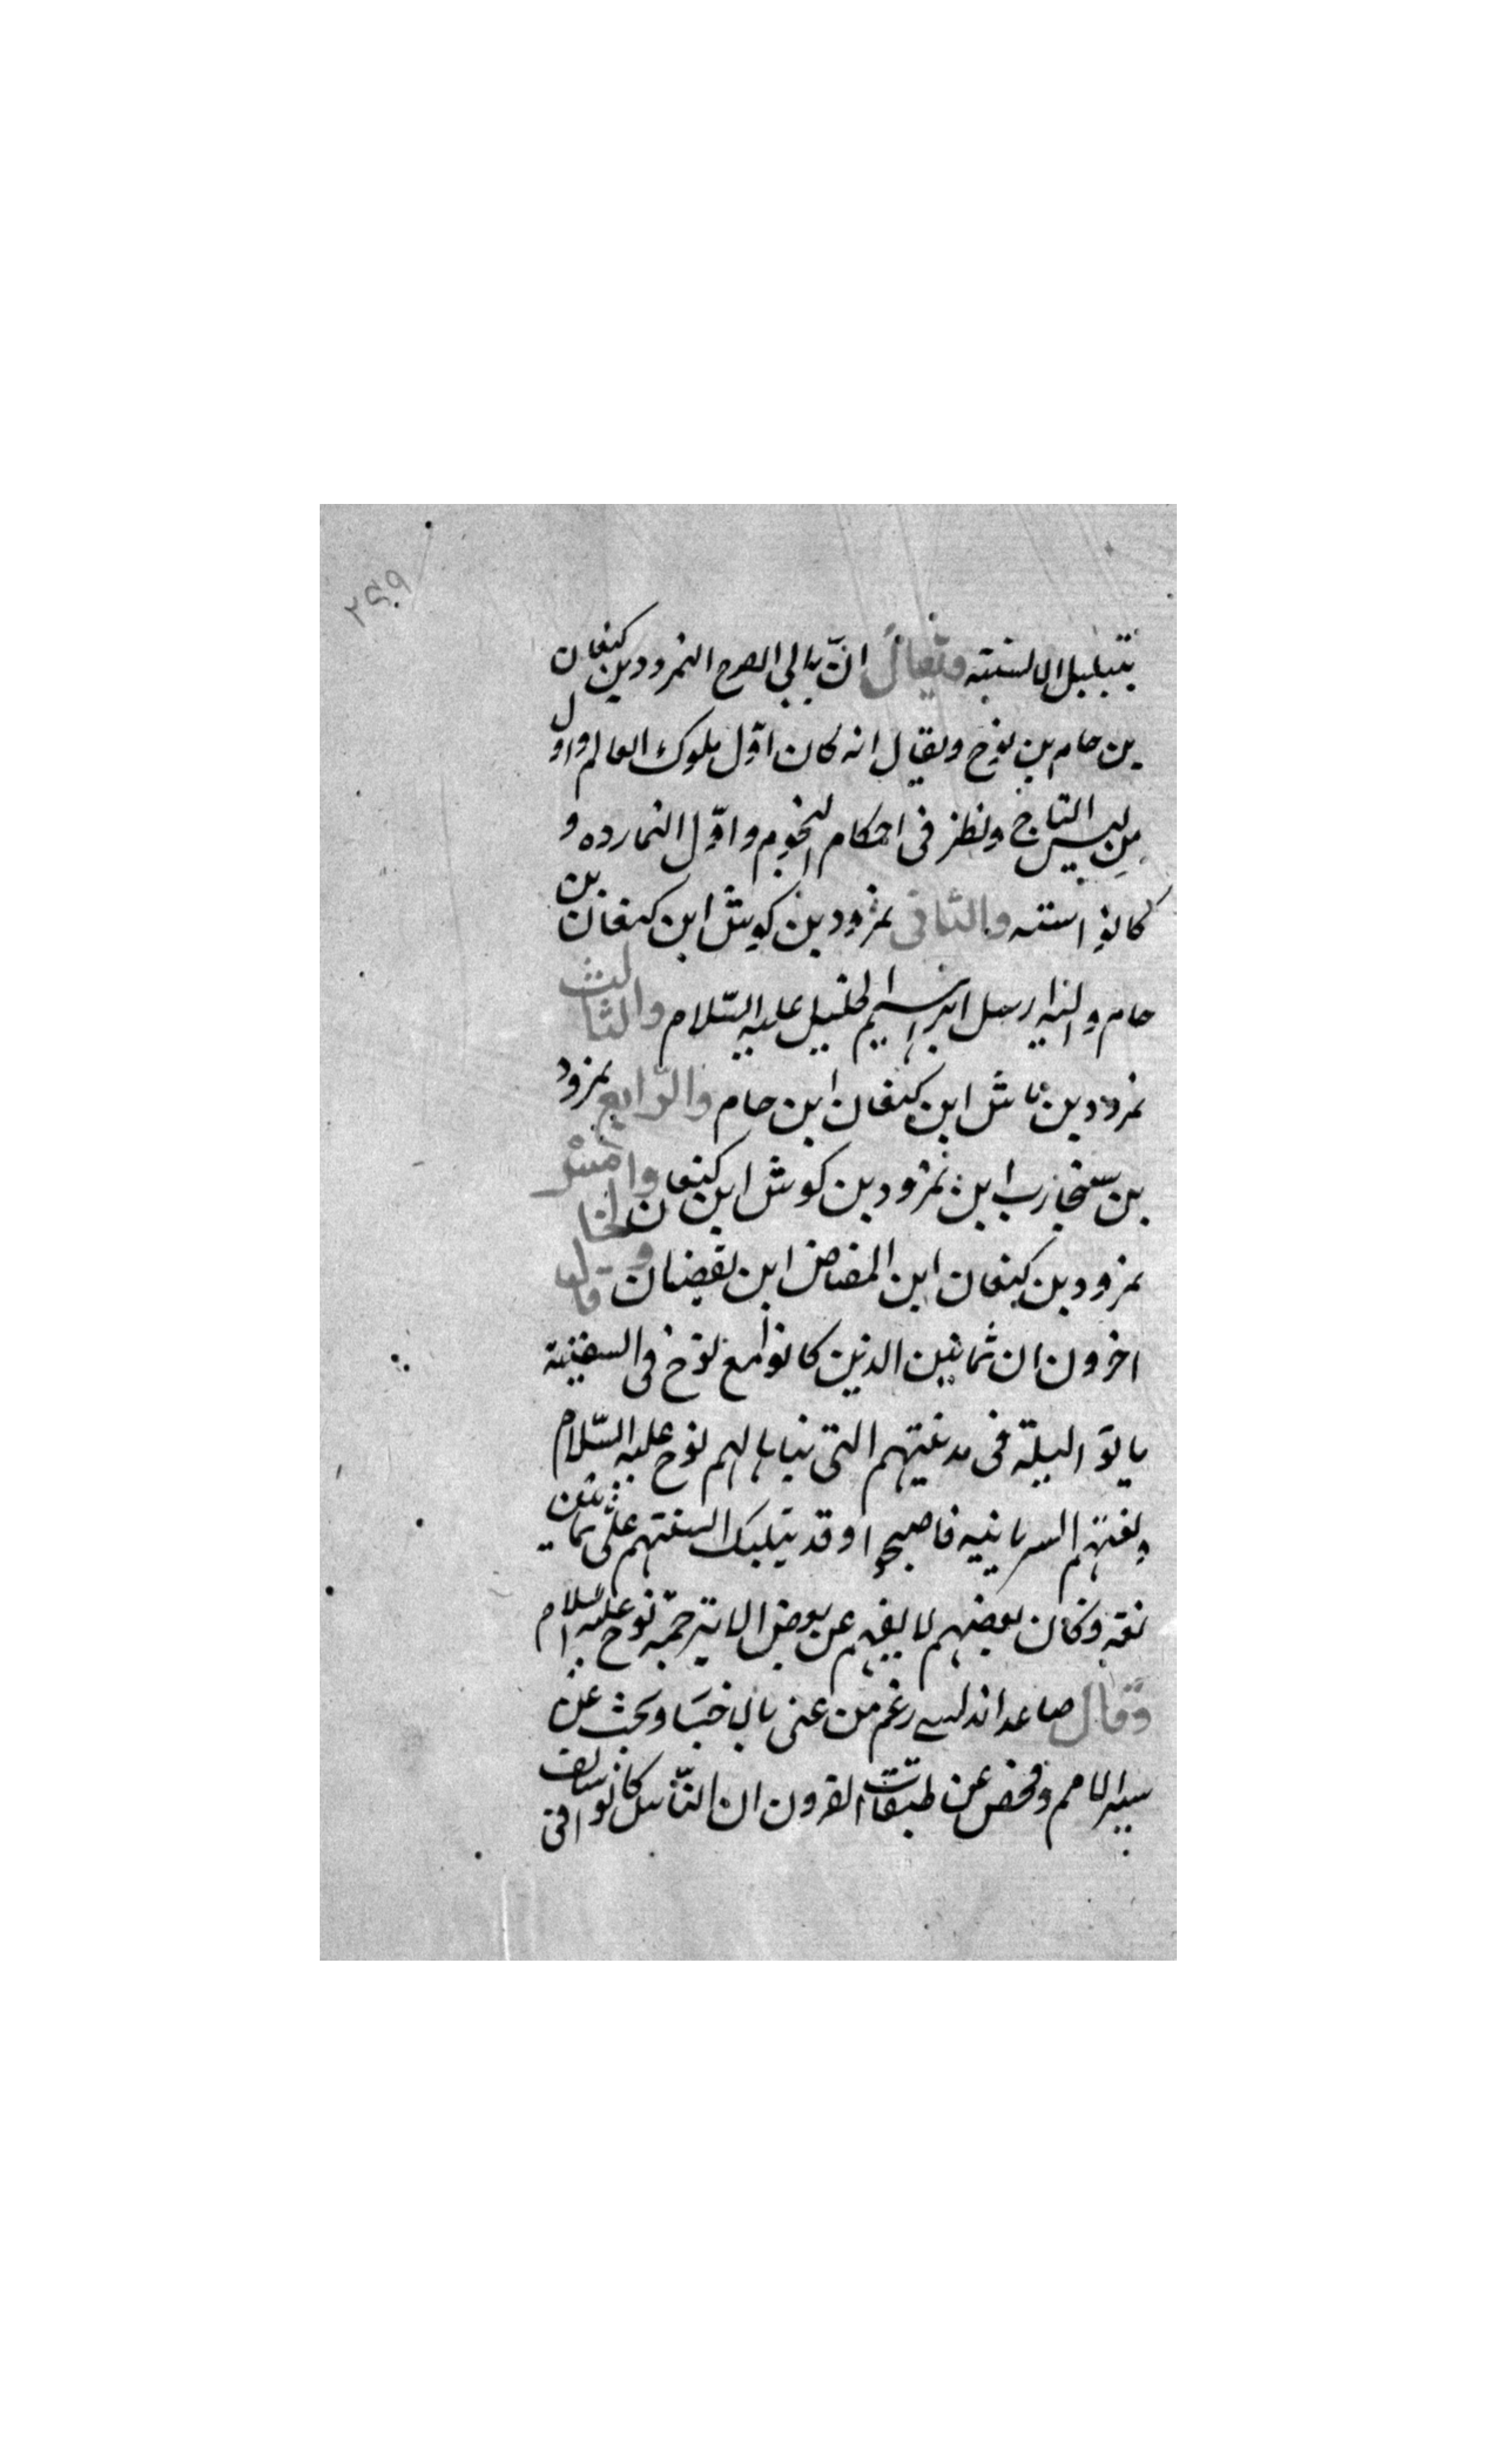 ٢٥٩
بتبلبل الالسنة ويقال انّ بانى الصرح النمرود بن كنعان
بن حام بن نوح ويقال انه كان اوّل ملوك العالم واول
من لبس التاج ونظر فى احكام النجوم واوّل النمارده و
كانوا ستة والثانى نمرود بن كوش ابن كنعان بن
حام واليه ارسل ابراهيم الخليل عليه السّلام والثالث
نمرود بن ماش ابن كنعان ابن حام والرّابع نمرود
بن سنحارب ابن نمرود بن كوش ابن كنعان والخامس
نمرود بن كنعان ابن المصاص ابن نقضان وقال
اخرون ان ثمانين الذين كانوا مع نوح فى السفينة
باتوا ليلة فى مدينتهم التى بناها لهم نوح عليه السّلام
ولغتهم السريانيه فاصبحوا وقد تبلبلت السنتهم على ثمانين
لغة وكان بعضهم لا يفهم عن بعض الا بترجمة نوح عليه السلام
وقال صاعد اندلسى زعم من عنى بالاخبار وبحث عن
سير الامم وفحص عن طبقات القرون ان النّاس كانوا فى سالف